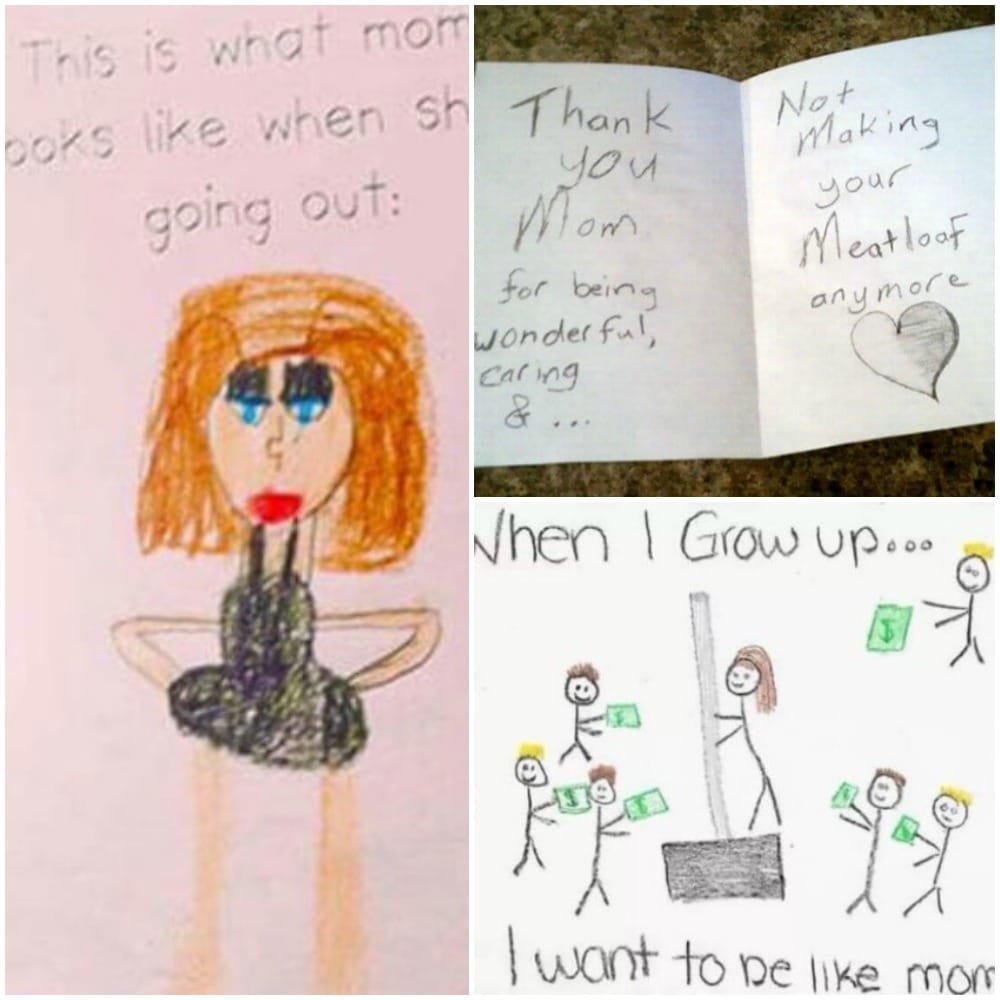 This is what mom
ooks like when sh
going out:
Thank
you
Mom
for being
wonderful,
caring
& ...
Not
Making
your
Meatloaf
anymore
When I Grow up...
$
$
$
$
$
$
I want to be like mom